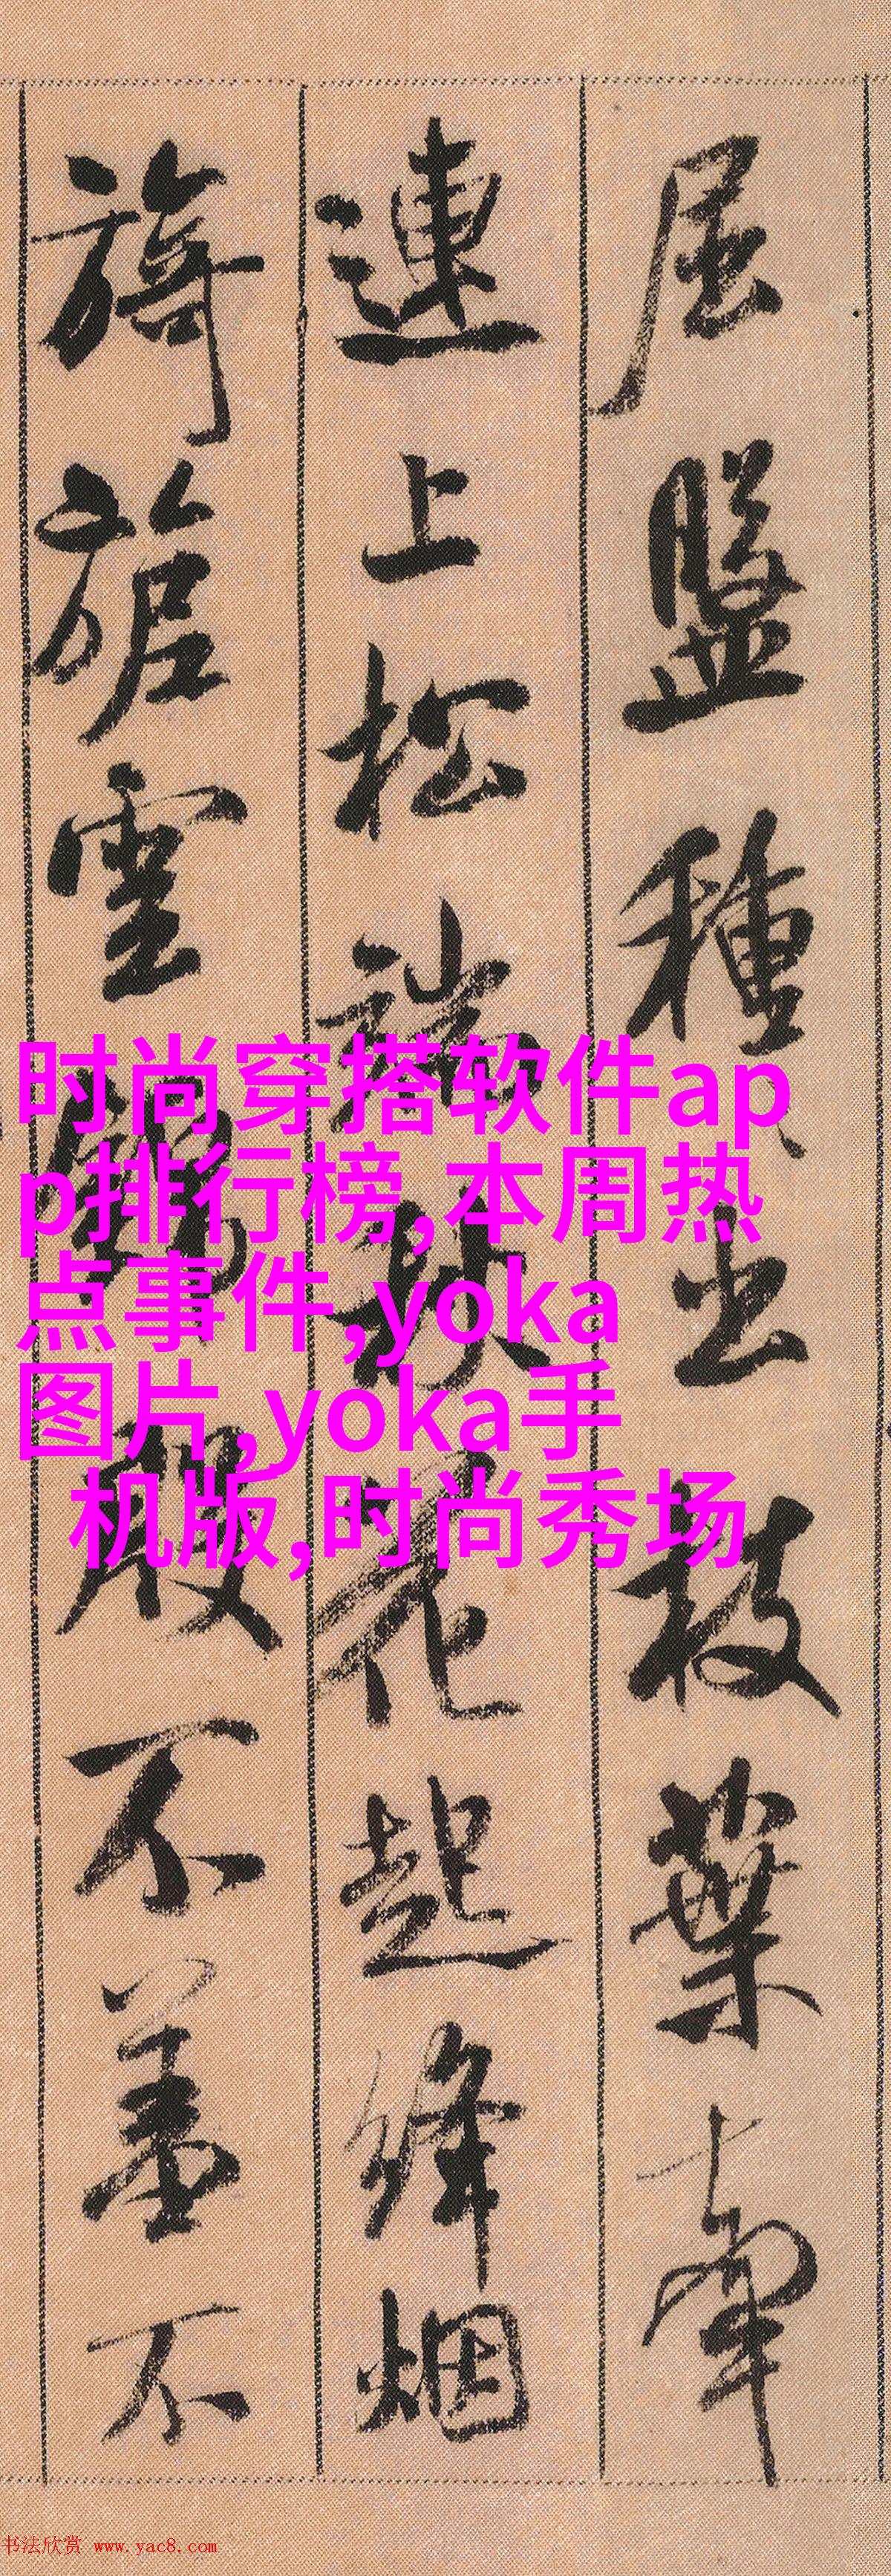 屈盤種〻出枝葉牽
連上松端秋花起絳烟
旖旎雲錦殷不羞不
时尚穿搭软件ap
p排行榜,本周热
点事件,yoka
图片,yoka手
机版,时尚秀场
书法欣赏 www.yac8.com